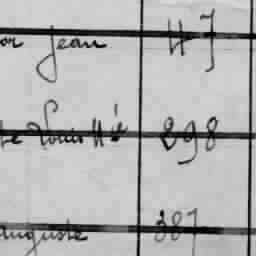 or Jean 47
te Louis Hte 898
auguste 387